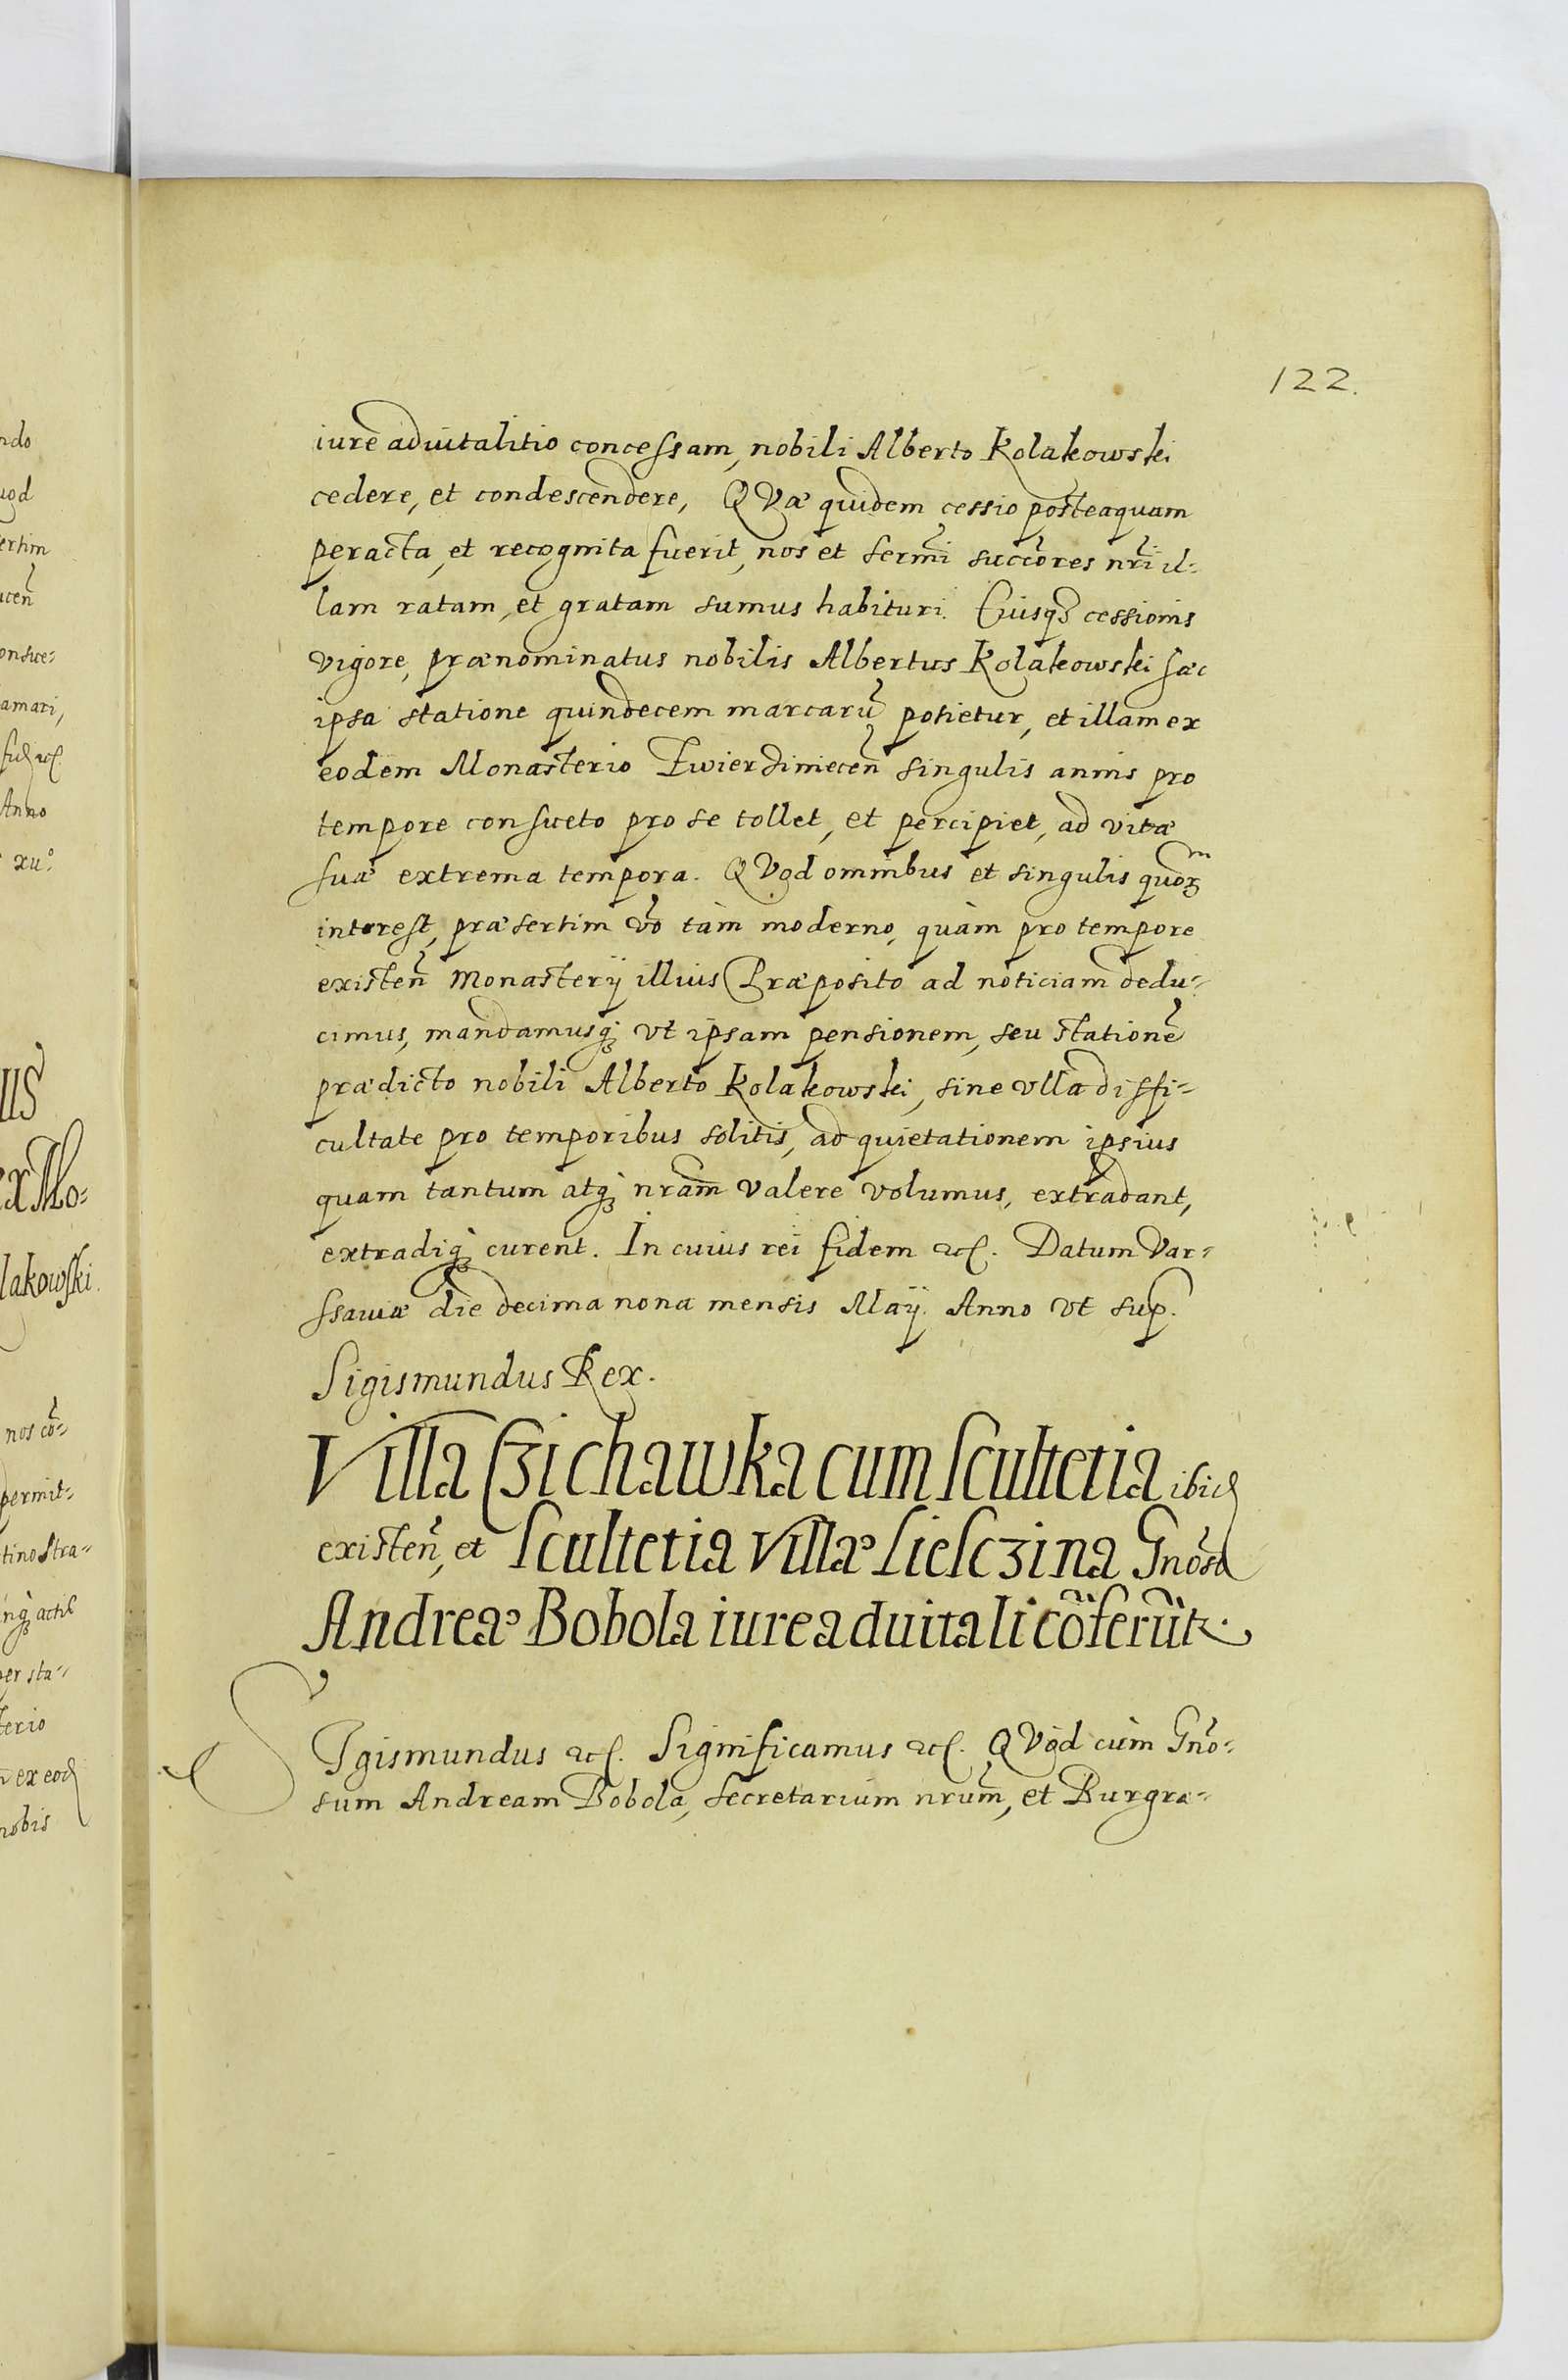 122.
iure aduitalitio concessam, nobili Alberto Kolakowski
cedere, et condescendere, QVæ quidem cessio posteaquam
peracta, et recognita fuerit, nos et sermĩ succõres nrĩ il-
lam ratam, et gratam sumus habituri. Cuiusqȝ cessionis
vigore, prænominatus nobilis Albertus Kolakowski hac
ipsa statione quindecem marcarũ potietur, et illam ex
eodem Monasterio Zwierzinieceñ singulis annis pro
tempore consueto pro se tollet, et percipiet, ad vitæ
suæ extrema tempora. QVod omnibus et singulis quoꝝ
interest, præsertim võ tàm moderno, quàm pro tempore
existeñ Monasterij illius Præposito ad noticiam dedu-
cimus, mandamusqȝ vt ipsam pensionem, seu stationẽ
prædicto nobili Alberto Kolakowski, sine vlla diffi-
cultate pro temporibus solitis, ad quietationem ipsius
quam tantum atqȝ nram̃ valere volumus, extradant,
extradiqȝ curent. In cuius rei fidem etc. Datum Var-
ssauiæ die decima nona mensis Maij. Anno vt sup.
Sigismundus Rex.
Villa Czichawka cum scultetia ibid
existeñ, et scultetia villæ Liesczina Gnõso
Andreæ Bobola iure aduitali cõferũt.
SIgismundus etc. Significamus etc. QVod cùm Gnõ-
sum Andream Bobola, secretarium nrum̃, et Burgra-
ndo
uod
ertim
onsue-
amari,
Anno
xu.°
IIS
ex Mo-
lakowski.
nos cõ-
permit-
tino stra-
er sta-
terio
ex eod
nobis